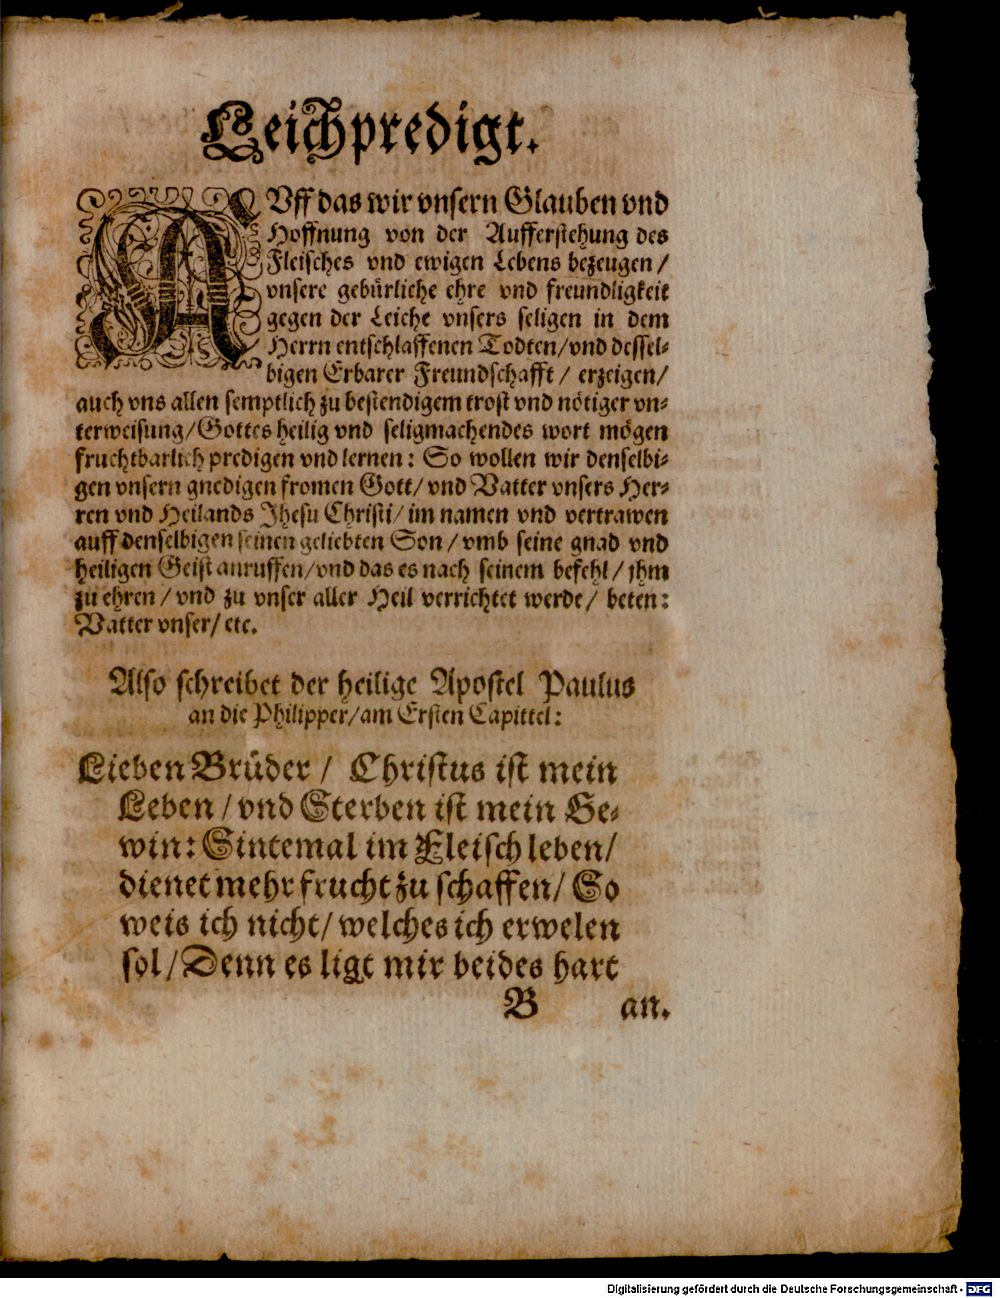 Leichpredigt.
AUff das wir vnsern Glauben vnd
Hoffnung von der Aufferstehung des
Fleisches vnd ewigen Lebens bezeugen /
vnsere gebürliche ehre vnd freundligkeit
gegen der Leiche vnsers seligen in dem
Herrn entschlaffenen Todten/vnd dessel-
bigen Erbarer Freundschafft / erzeigen/
auch vns allen semptlich zu bestendigem trost vnd nötiger vn-
terweisung/Gottes heilig vnd seligmachendes wort mögen
fruchtbarlich predigen vnd lernen: So wollen wir denselbi-
gen vnsern gnedigen fromen Gott/ vnd Vatter vnsers Her-
ren vnd Heilands Jhesu Christi/ im namen vnd vertrawen
auff denselbigen seinen geliebten Son / vmb seine gnad vnd
heiligen Geist anruffen/vnd das es nach seinem befehl / jhm
zu ehren / vnd zu vnser aller Heil verrichtet werde/ beten:
Vatter vnser/ etc.
Also schreibet der heilige Apostel Paulus
an die Philipper/am Ersten Capittel:
Lieben Brüder / Christus ist mein
Leben / vnd Sterben ist mein Ge-
win: Sintemal im Fleisch leben/
dienet mehr frucht zu schaffen/ So
weis ich nicht/ welches ich erwelen
sol/Denn es ligt mir beides hart
B an.
Digitalisierung gefördert durch die Deutsche Forschungsgemeinschaft - DFG